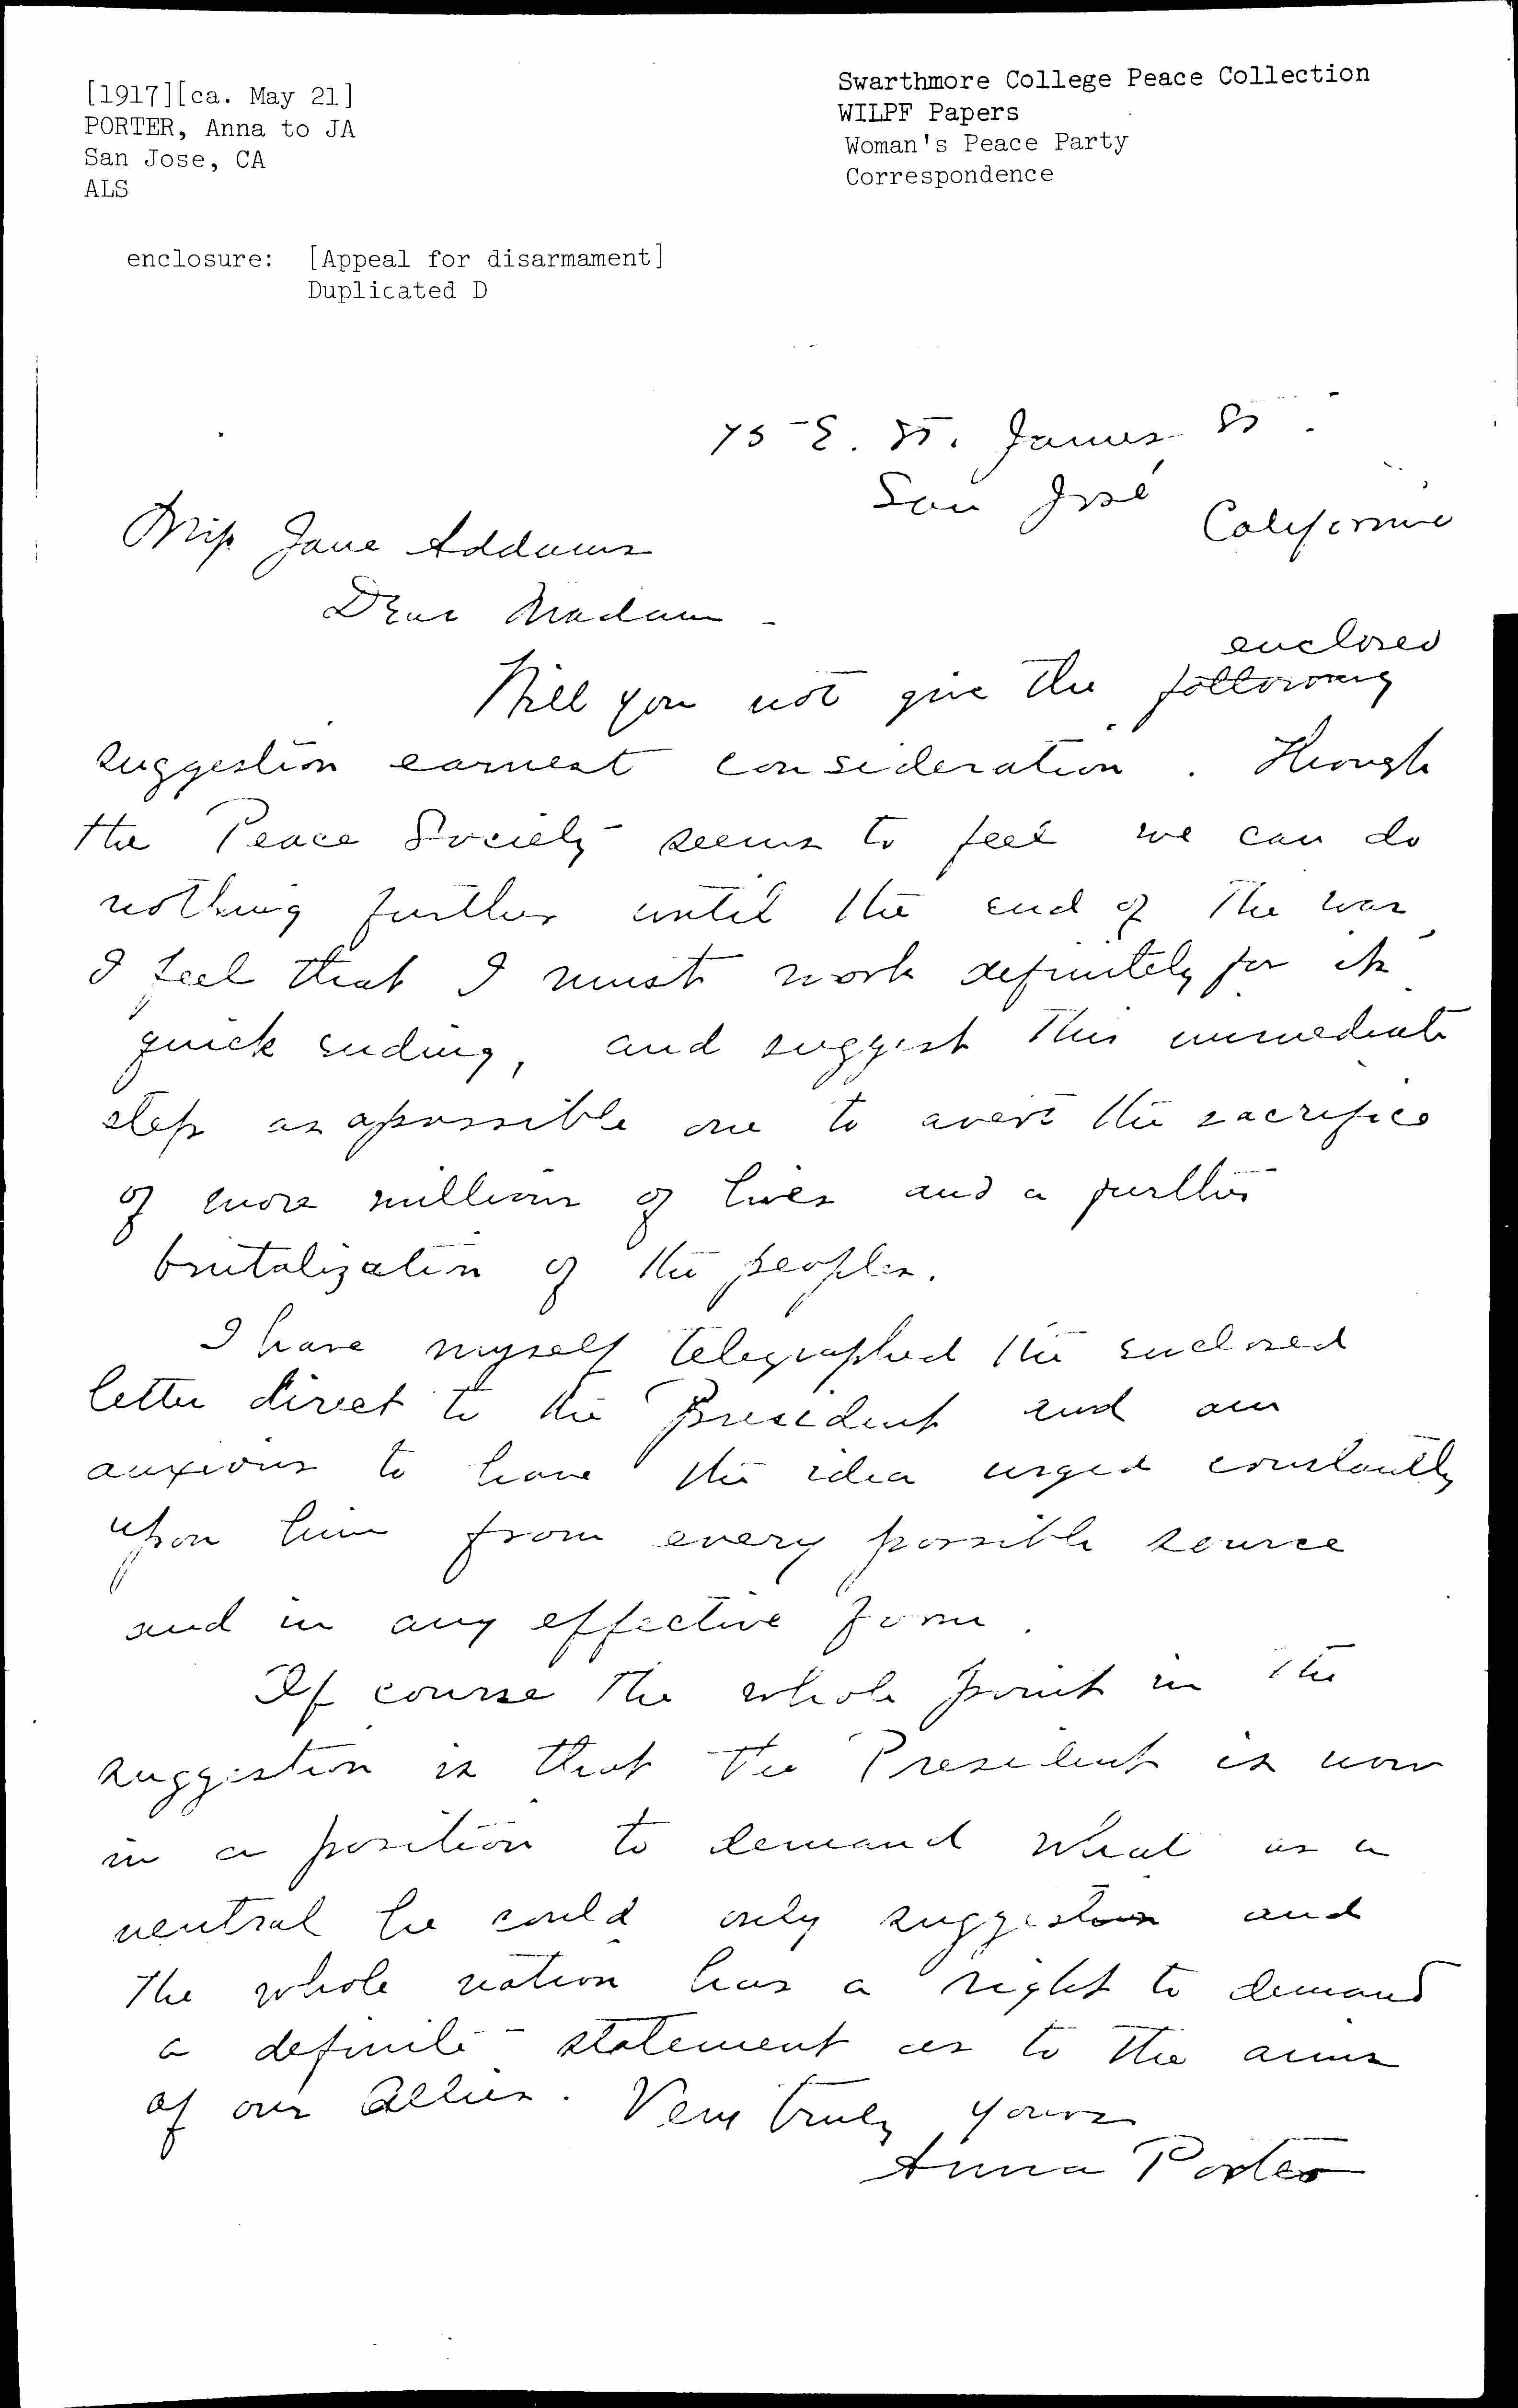 [1917][ca. May 21]
PORTER, Anna to JA
San Jose, CA
ALS
Swarthmore College Peace Collection
WILPF Papers
Woman's Peace Party
Correspondence
enclosure: [Appeal for disarmament]
Duplicated D
75 E. St. James St.
San José
California
Miss Jane Addams
Dear Madam -
enclosed
Will you not give the following
suggestion earnest consideration. Though
the Peace Society seems to feel we can do
nothing further until the end of the war,
I feel that I must work definitely for its
quick ending, and suggest this immediate
step as a possible one to avert the sacrifice
of more millions of lives and a further
brutalization of the peoples.
I have myself telegraphed the enclosed
letter direct to the President and am
anxious to have the idea urged constantly
upon him from every possible source
and in any effective form.
Of course the whole point in the
suggestion is that the President is now
in a position to demand what as a
neutral he could only suggestion and
the whole nation has a right to demand
a definite statement as to the aims
of our Allies. Very truly yours
Anna Porter